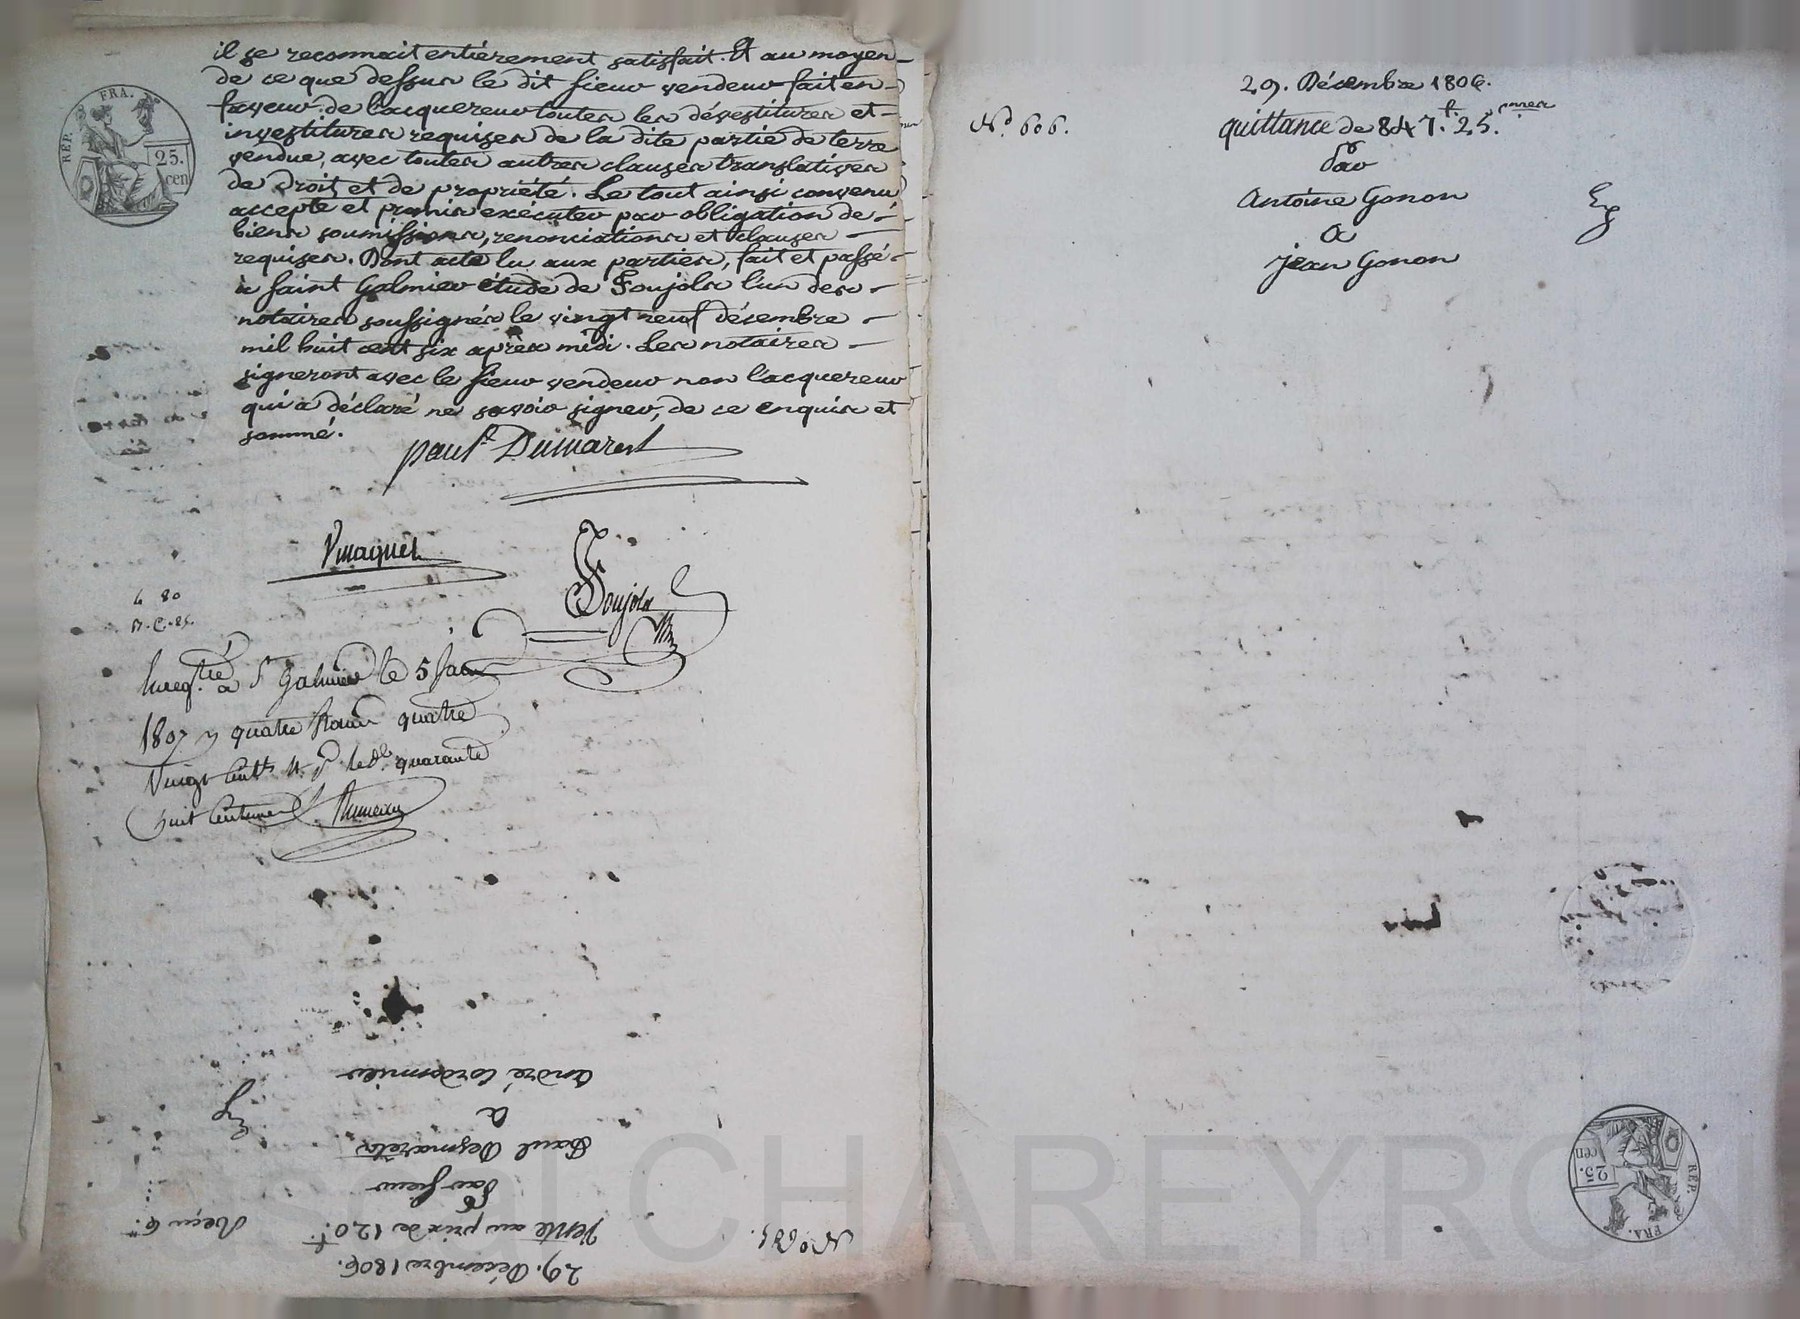 il se reconnait entiérement satisfait. Et au moyen
de ce que dessus le dit sieur vendeur fait en
faveur de l'acquereur toutes les dévestitures et
investitures requises de la dite partie de terre
vendue, avec toutes autres clauses translatives
de droit et de propriété. Le tout ainsi convenu
accepté et promis exécuter par obligation de
biens soumissions, renonciations et clauses
requises. Dont acte lu aux parties, fait et passé
à Saint Galmier étude de Soujols l'un des
notaires soussignés le vingt neuf décembre
mil huit cent six après midi. Les notaires
signeront avec le sieur vendeur non l'acquereur
qui a déclaré ne savoir signer, de ce enquis et
sommé.
REP. FRA.
25.
cen
paul Dumarest
Soujols
4 80
Enregtré à St Galmier le 5 Janr
1807 quatre francs quatre
vingt centes quarante
huit centimes
29. Décembre 1806.
Vente au prix de 120 f.
Par Sieur
Paul Desmarets
a
André Cordonnier
Reçu 6.
Ex
29. Décembre 1806.
N.º 606.
quittance de 847 f. 25.
Par
Antoine Gonon
a
jean Gonon
Ex
REP. FRA.
25.
cen
CHAREYRON